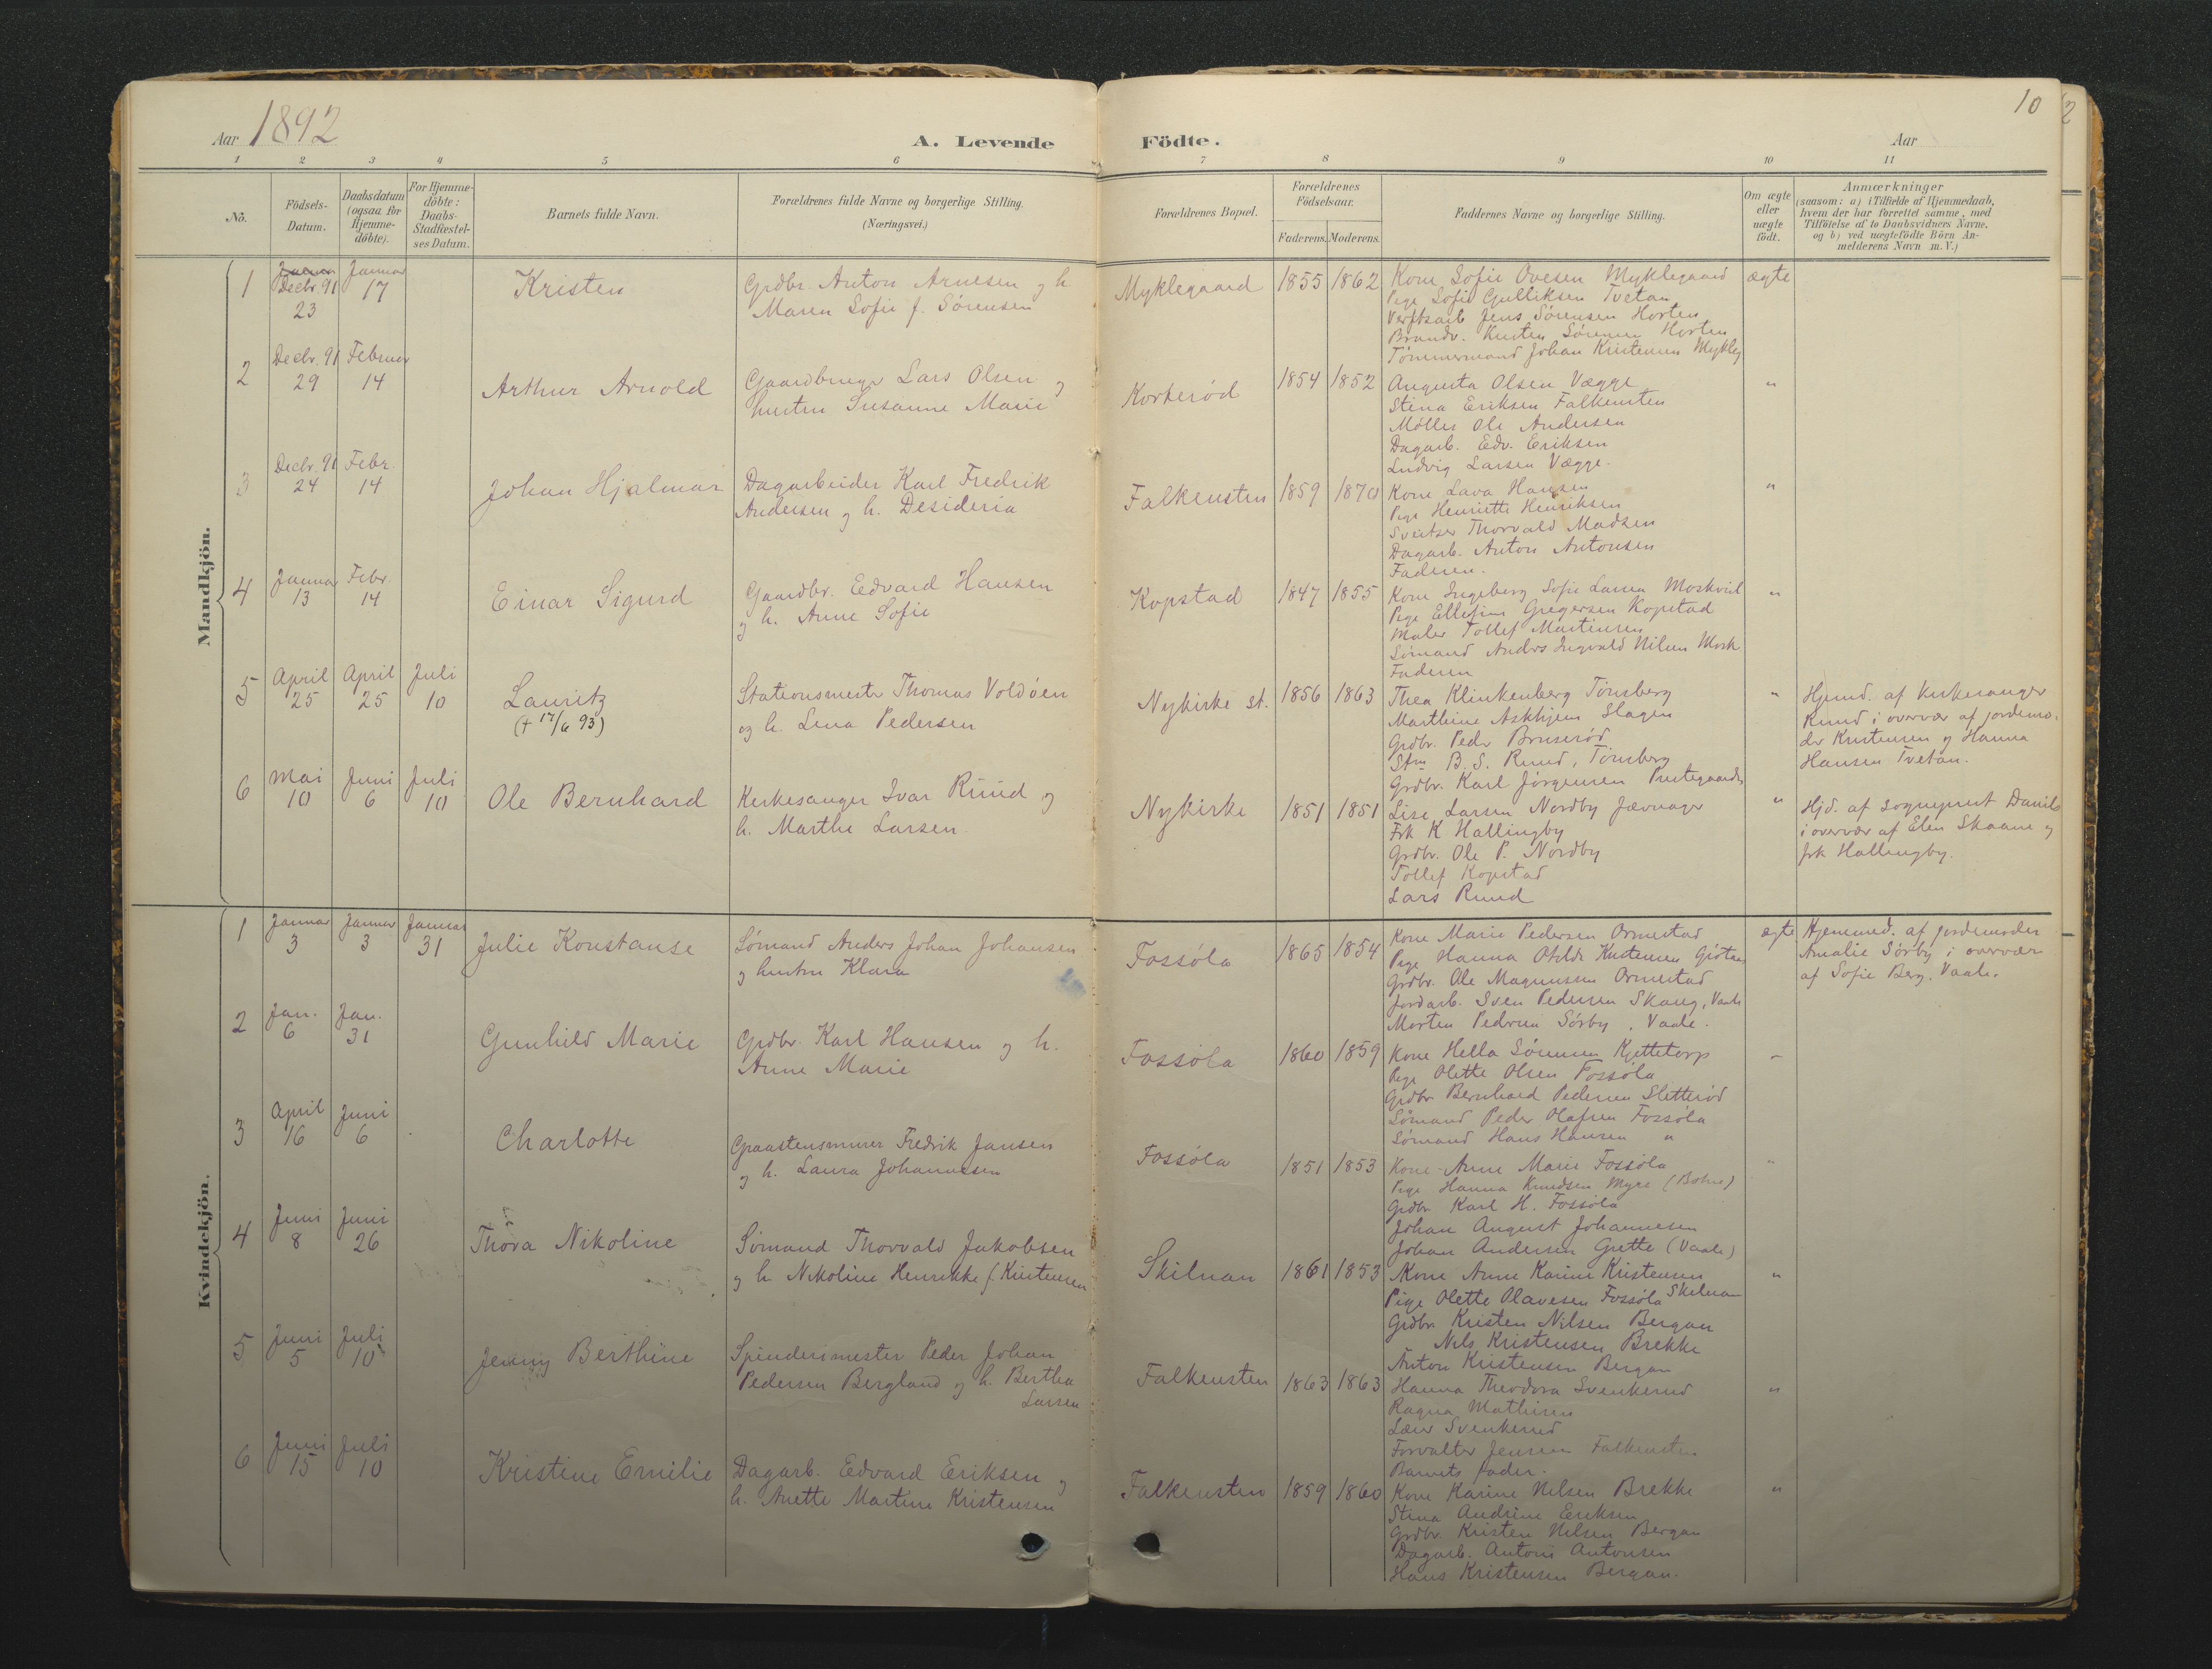 10
Aar 1892
A. Levende Födte.
Aar
1 2 3 4 5 6 7 8 9 10 11
No.
Födsels-Datum.
Daabsdatum (ogsaa for Hjemme-döbte).
For Hjemme-döbte: Daabs-Stadfestel-ses Datum.
Barnets fulde Navn.
Forældrenes fulde Navne og borgerlige Stilling. (Næringsvei.)
Forældrenes Bopæl.
Forældrenes Födselsaar.
Faderens. Moderens.
Faddernes Navne og borgerlige Stilling.
Om ægte eller uægte födt.
Anmærkninger
(saasom: a) i Tilfælde af Hjemmedaab,
hvem der har forrettet samme, med
Tilföielse af to Daabsvidners Navne,
og b) ved uægtefödte Börn An-
melderens Navn m. V.)
Mandkjön.
1
Januar
Decbr. 91
23
Januar
17
Kristen
Grdbr Anton Arnesen og h.
Maren Sofie f. Sørensen
Myklegaard
1855 1862
Kone Sofie Ovesen Myklegaard
Pige Sofie Gulliksen Tvetan
Verftsarb Jens Sørensen Horten
Brandv. Kristen Sørensen Horten
Tömmermand Johan Kristensen Mykleg
ægte
2
Decbr. 91
29
Februar
14
Arthur Arnold
Gaardbruger Lars Olsen og
hustru Susanne Marie
Korterød
1854 1852
Augusta Olsen Vægge
Stina Eriksen Falkensten
Möller Ole Andersen
Dagarb. Edv. Eriksen
Ludvig Larsen Vægge.
"
3
Decbr. 91
24
Febr.
14
Johan Hjalmar
Dagarbeider Karl Fredrik
Andersen og h. Desideria
Falkensten
1859 1870
Kone Lava Hansen
Pige Henriette Henriksen
Sveitser Thorvald Madsen
Dagarb. Anton Antonsen
Faderen.
"
4
Januar
13
Febr.
14
Einar Sigurd
Gaardbr. Edvard Hansen
og h. Anne Sofie
Kopstad
1847 1855
Kone Ingeborg Sofie Larsen Moskvil
Pige Ellefine Gregersen Kopstad
Maler Tollef Martinsen
Sömand Anders Ingvald Nilsen Mosk
Faderen
"
5
April
25
April
25
Juli
10
Lauritz
(† 17/6 93)
Stationsmester Thomas Voldöen
og h. Lena Pedersen
Nykirke st.
1856 1863
Thea Klinkenberg Tönsberg
Marthine Askhjem Slagen
Grdbr. Peder Bruserød
Stm B. S. Ruud, Tönsberg
Grdbr. Karl Jörgensen Prestegaarden
"
Hjemd. af Kirkesanger
Ruud i overvær af jordemo-
der Kristensen og Hanna
Hansen Tvetan.
6
Mai
10
Juni
6
Juli
10
Ole Bernhard
Kirkesanger Ivar Ruud og
h. Marthe Larsen
Nykirke
1851 1851
Lise Larsen Nordby Jævnager
Frk K Hallingby
Grdbr. Ole P. Nordby
Tollef Kopstad
Lars Ruud
"
Hjd. af sogneprest Daniels
i overvær af Elen Skaane og
frk Hallingby.
Kvindekjön.
1
Januar
3
Januar
3
Januar
31
Julie Konstanse
Sömand Anders Johan Johansen
og hustru Klara
Fossöla
1865 1854
Kone Marie Pedersen Ormestad
Pige Hanna Otilde Kristensen
Grdbr. Ole Magnussen Ormestad
Jordarb. Sven Pedersen Skaug, Vaale
Morten Pedersen Sörby, Vaale.
ægte
Hjemmed. af jordemoder
Amalie Sörby i overvær
af Sofie Berg. Vaale.
2
Jan.
6
Jan.
31
Gunhild Marie
Grdbr. Karl Hansen og h.
Anne Marie
Fossöla
1860 1859
Kone Hella Sörensen Kjettetorp
Pige Olette Olsen Fossöla
Grdbr Bernhard Pedersen Sletteröd
Sömand Peder Olafsen Fossöla
Sömand Hans Hansen "
"
3
April
16
Juni
6
Charlotte
Graastensmurer Fredrik Jansen
og h. Laura Johannesen
Fossöla
1851 1853
Kone Anne Marie Fossöla
Pige Hanna Knudsen Myre (Botne)
Grdbr Karl H. Fossöla
Johan August Johannesen
Johan Andersen Grette (Vaale)
"
4
Juni
8
Juni
26
Thora Nikoline
Sömand Thorvald Jakobsen
og h. Nikoline Henrikke f. Kristensen
Skilnan
1861 1853
Kone Anne Karine Kristensen
Skilnan
Pige Olette Olavesen Fossöla
Grdbr Kristen Nilsen Bergan
Nils Kristensen Brekke
Anton Kristensen Bergan
"
5
Juni
5
Juli
10
Jenny Berthine
Spinderimester Peder Johan
Pedersen Bergland og h. Bertha
Larsen
Falkensten
1863 1863
Hanna Theodora Svenkerud
Ragna Mathisen
Svenkerud
Forvalter Jensen Falkensten
Barnets fader.
"
6
Juni
15
Juli
10
Kristine Emilie
Dagarb. Edvard Eriksen og
h. Anette Martine Kristensen
Falkensten
1859 1860
Kone Karine Nilsen Brekke
Stina Andrine Eriksen
Grdbr. Kristen Nilsen Bergan
Dagarb. Anton Antonsen
Hans Kristensen Bergan.
"